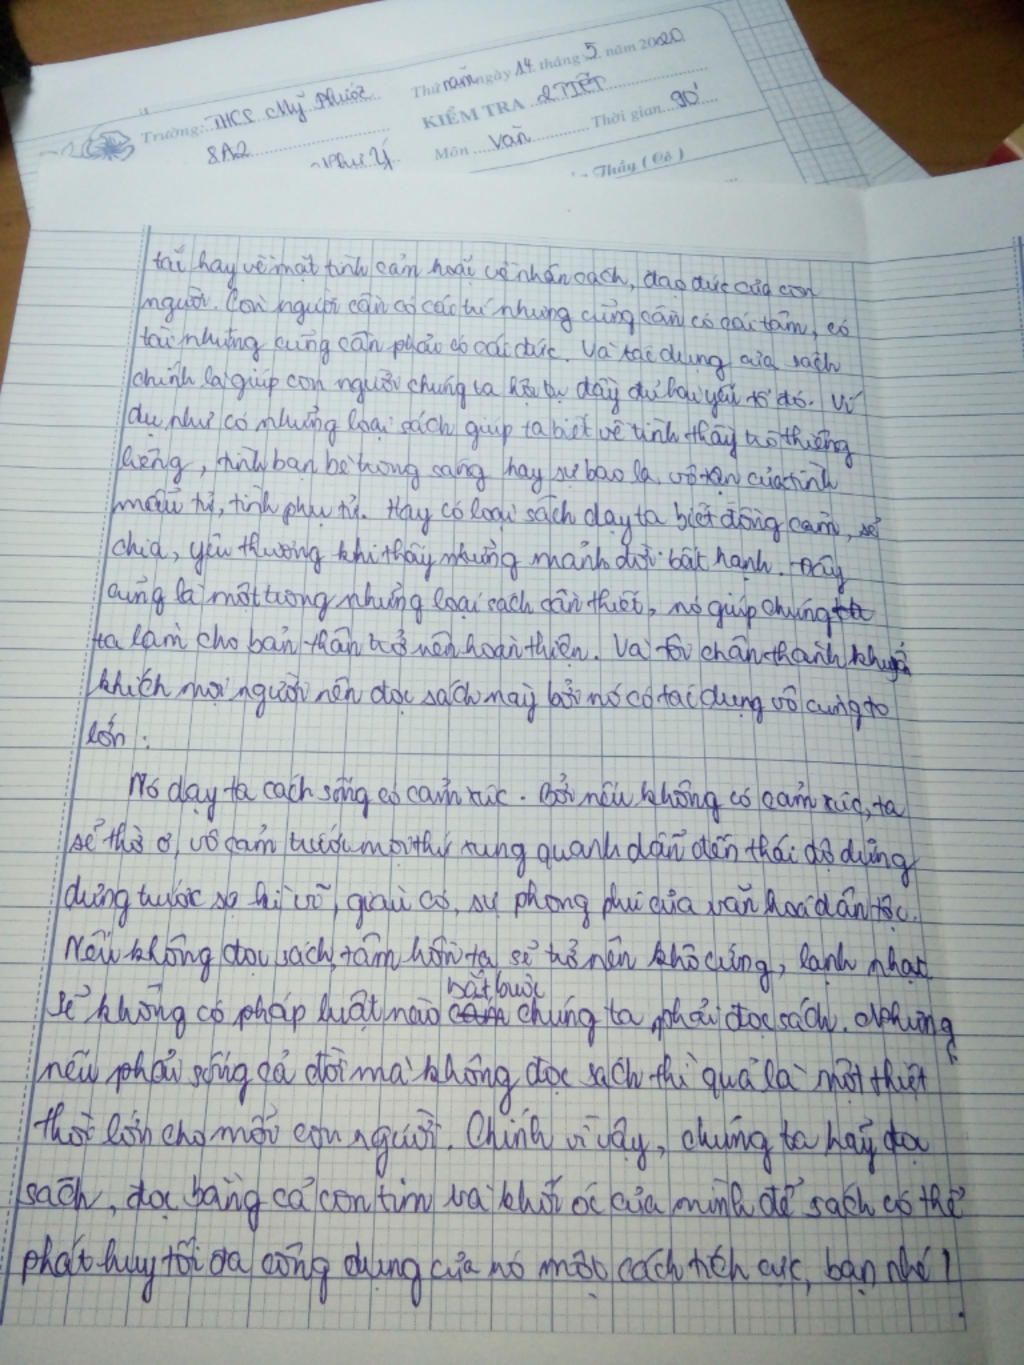 Trường: THCS Mỹ Phước Thứ năm ngày 14 tháng 5 năm 2020
8A2 KIỂM TRA 2 TIẾT
Như Ý Môn Văn Thời gian 90'
Thầy ( Cô )
tài hay về mặt tình cảm hoặc về nhân cách, đạo đức của con
người. Con người cần có cái trí nhưng cũng cần có cái tâm, có
tài nhưng cũng cần phải có cái đức. Và tác dụng của sách
chính là giúp con người chúng ta hội tụ đầy đủ hai yếu tố đó. Ví
dụ như có những loại sách giúp ta biết về tình thầy trò thiêng
liêng, tình bạn bè trong sáng hay sự bao la, vô tận của tình
mẫu tử, tình phụ tử. Hay có loại sách dạy ta biết đồng cảm, sẻ
chia, yêu thương khi thấy những mảnh đời bất hạnh. Đây
cũng là một trong những loại sách cần thiết, nó giúp chúng
ta làm cho bản thân trở nên hoàn thiện. Và tôi chân thành khuyến
khích mọi người nên đọc sách này bởi nó có tác dụng vô cùng to
lớn.
Nó dạy ta cách sống có cảm xúc. Bởi nếu không có cảm xúc, ta
sẽ thờ ơ, vô cảm trước mọi thứ xung quanh dẫn đến thái độ dửng
dưng trước sự hùng vĩ, giàu có, sự phong phú của văn hoá dân tộc.
Nếu không đọc sách, tâm hồn ta sẽ trở nên khô cứng, lạnh nhạt
bắt buộc
Sẽ không có pháp luật nào chúng ta phải đọc sách. Nhưng
nếu phải sống cả đời mà không đọc sách thì quả là một thiệt
thòi lớn cho mỗi con người. Chính vì vậy, chúng ta hãy đọc
sách, đọc bằng cả con tim và khối óc của mình để sách có thể
phát huy tối đa công dụng của nó một cách tích cực, bạn nhé!